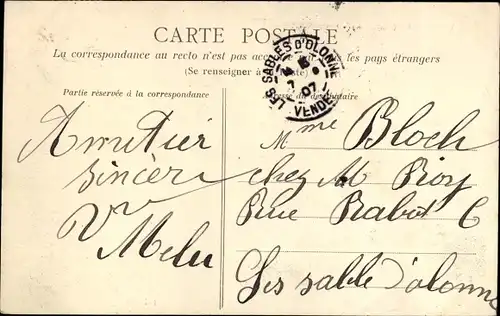 CARTE POSTALE
La correspondance au recto n'est pas les pays étrangers
(Se renseigner à
Partie réservée à la correspondance
Adresse du destinataire
LES SABLES D'OLONNE
7 07
VENDÉE
Amitier
sincèr
Melu
Mme Bloch
chez M Roy
Rue Rabot 6
Les sable d'olonne